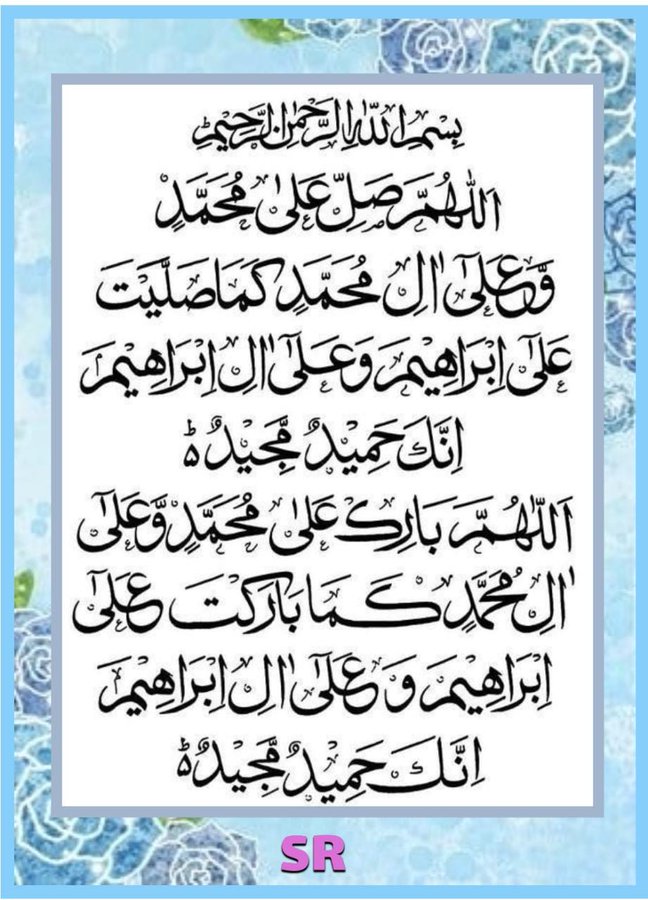 بِسْمِ اللّٰهِ الرَّحْمٰنِ الرَّحِيْمِ
اَللّٰهُمَّ صَلِّ عَلٰى مُحَمَّدٍ
وَّعَلٰٓى اٰلِ مُحَمَّدٍ كَمَا صَلَّيْتَ
عَلٰٓى اِبْرَاهِيْمَ وَعَلٰٓى اٰلِ اِبْرَاهِيْمَ
اِنَّكَ حَمِيْدٌ مَّجِيْدٌ ؕ
اَللّٰهُمَّ بَارِكْ عَلٰى مُحَمَّدٍ وَّعَلٰٓى
اٰلِ مُحَمَّدٍ كَمَا بَارَكْتَ عَلٰٓى
اِبْرَاهِيْمَ وَ عَلٰٓى اٰلِ اِبْرَاهِيْمَ
اِنَّكَ حَمِيْدٌ مَّجِيْدٌ ؕ
SR